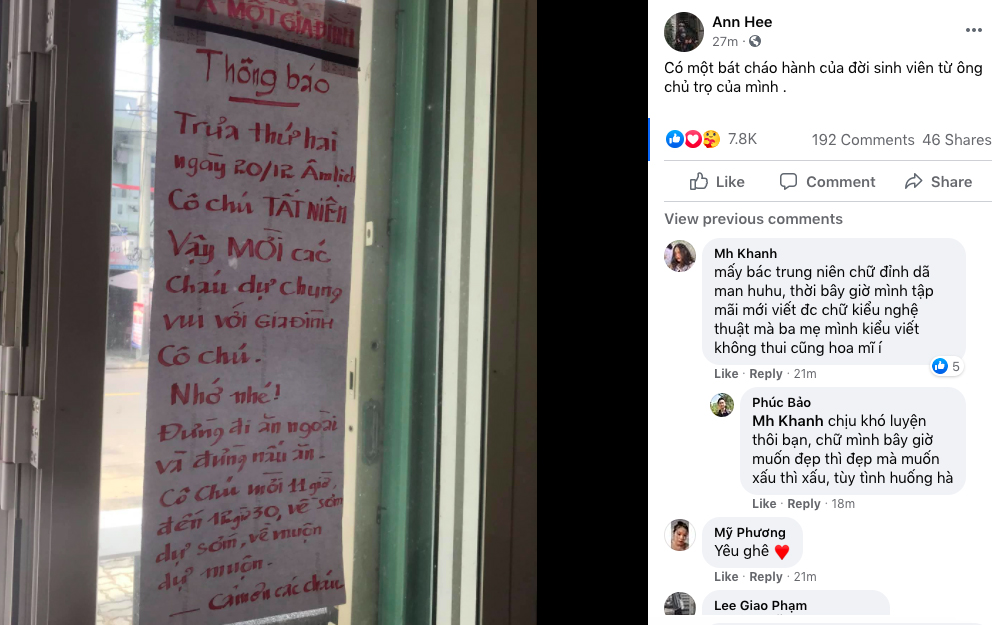 LÀ MỘT GIA ĐÌNH
Thông báo
Trưa thứ hai
ngày 20/12 Âm lịch
Cô chú TẤT NIÊN
Vậy MỜI các
Cháu dự chung
VUI VỚI GIA ĐÌNH
Cô chú.
Nhớ nhé!
Đừng đi ăn ngoài
và đừng nấu ăn.
Cô Chú mời 11 giờ,
đến 12giờ30, về sớm
dự sớm, về muộn
dự muộn.
— Cảm ơn các cháu
Ann Hee
27m
Có một bát cháo hành của đời sinh viên từ ông
chủ trọ của mình .
7.8K 192 Comments 46 Shares
Like Comment Share
View previous comments
Mh Khanh
mấy bác trung niên chữ đỉnh dã
man huhu, thời bây giờ mình tập
mãi mới viết đc chữ kiểu nghệ
thuật mà ba mẹ mình kiểu viết
không thui cũng hoa mĩ í
5
Like · Reply · 21m
Phúc Bảo
Mh Khanh chịu khó luyện
thôi bạn, chữ mình bây giờ
muốn đẹp thì đẹp mà muốn
xấu thì xấu, tùy tình huống hà
Like · Reply · 18m
Mỹ Phương
Yêu ghê ❤️
Like · Reply · 21m
Lee Giao Phạm